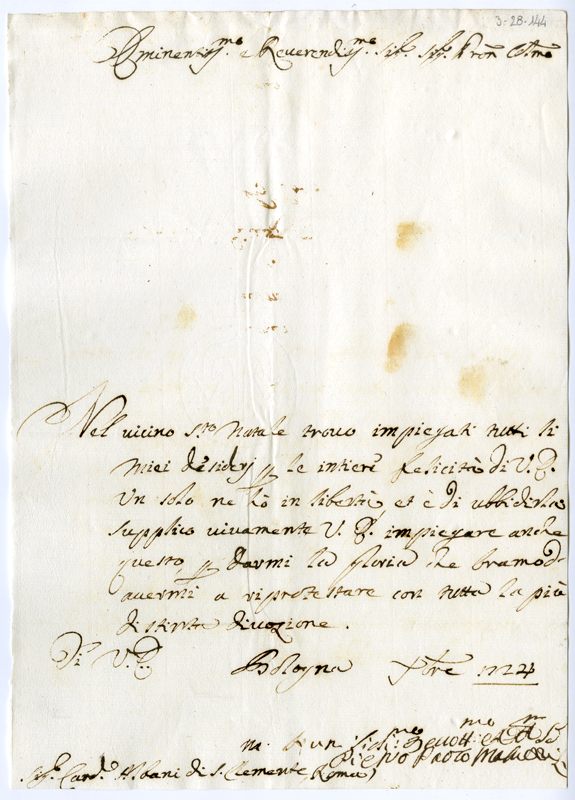 3-28-144
Eminentiss.mo e Reverendiss.mo Sig.r Sig.r Pron Col.mo
Nel vicino S.to Natale trovo impiegati tutti li
miei desiderj p le intiere felicità di V. E.
Un solo ne hò in libertà, et è di ubbidirla
supplico vivamente V. E. impiegare anche
questo, p darmi la gloria che bramo d'
avermi a riprotestare con tutta la più
distinta divozione.
Di V. E.
Bologna Xbre 1724
Sig.r Card. Albani di S. Clemente, Roma